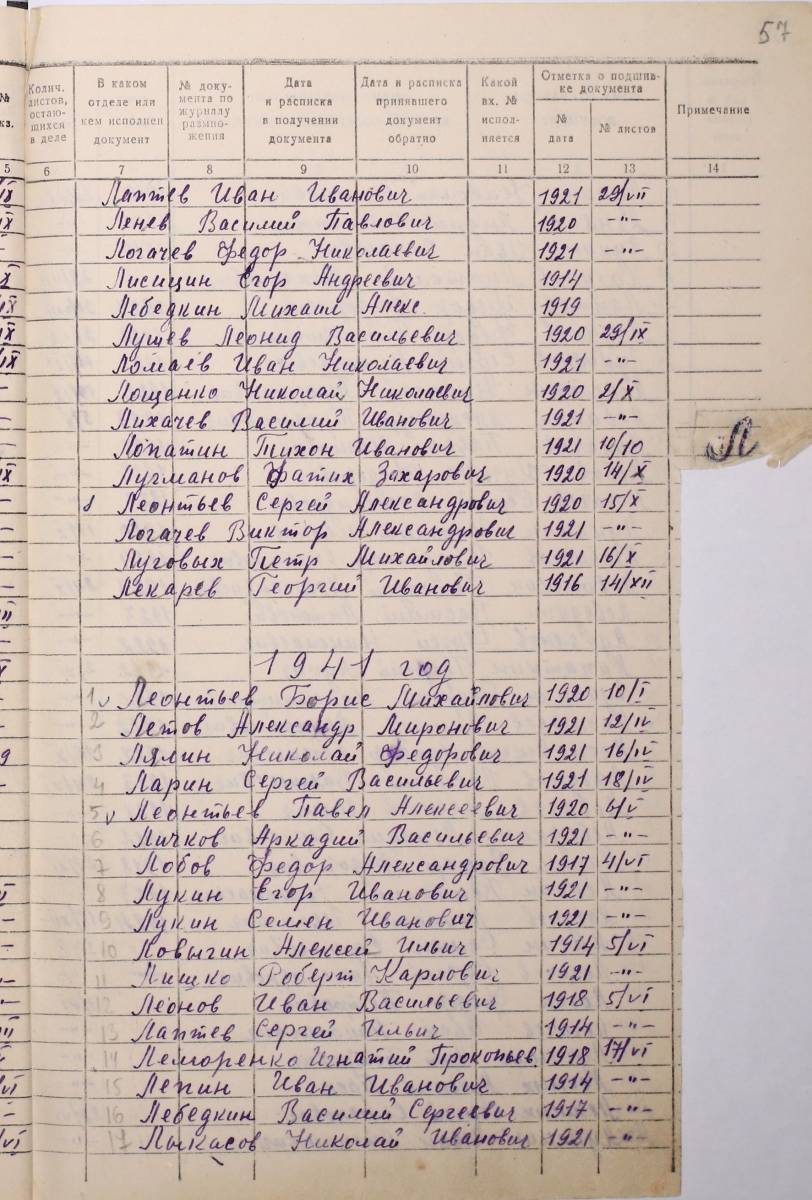 57
№ кз.
Колич. листов, остающихся в деле
В каком отделе или кем исполнен документ
№ документа по журналу размножения
Дата и расписка в получении документа
Дата и расписка принявшего документ обратно
Какой вх. № исполняется
Отметка о подшивке документа
№ дата
№ листов
Примечание
5 6 7 8 9 10 11 12 13 14
Лаптев Иван Иванович 1921 29/VII
Ленев Василий Павлович 1920 -"-
Логачев Федор Николаевич 1921 -"-
Лисицин Егор Андреевич 1914
Лебедкин Михаил Алекс. 1919
Лушев Леонид Васильевич 1920 29/IX
Ломаев Иван Николаевич 1921 -"-
Лощенко Николай Николаевич 1920 2/X
Лихачев Василий Иванович 1921 -"-
Лопатин Тихон Иванович 1921 10/10
Л
Лугманов Фатих Захарович 1920 14/X
Леонтьев Сергей Александрович 1920 15/X
Логачев Виктор Александрович 1921 -"-
Луговых Петр Михайлович 1921 16/X
Лекарев Георгий Иванович 1916 14/XII
1941 год
1 v Леонтьев Борис Михайлович 1920 10/I
2 Летов Александр Миронович 1921 12/IV
3 Лялин Николай Федорович 1921 16/IV
4 Ларин Сергей Васильевич 1921 18/IV
5 v Леонтьев Павел Алексеевич 1920 4/V
6 Личков Аркадий Васильевич 1921 -"-
7 Лобов Федор Александрович 1917 4/VI
8 Лукин Егор Иванович 1921 -"-
9 Лукин Семен Иванович 1921 -"-
10 Ловыгин Алексей Ильич 1914 5/VI
11 Лишко Роберт Карлович 1921 -"-
12 Леонов Иван Васильевич 1918 5/VI
13 Лаптев Сергей Ильич 1914 -"-
14 Лемаренко Игнатий Прокопьев. 1918 17/VI
15 Лепин Иван Иванович 1914 -"-
16 Лебедкин Василий Сергеевич 1917 -"-
17 Лыкасов Николай Иванович 1921 -"-